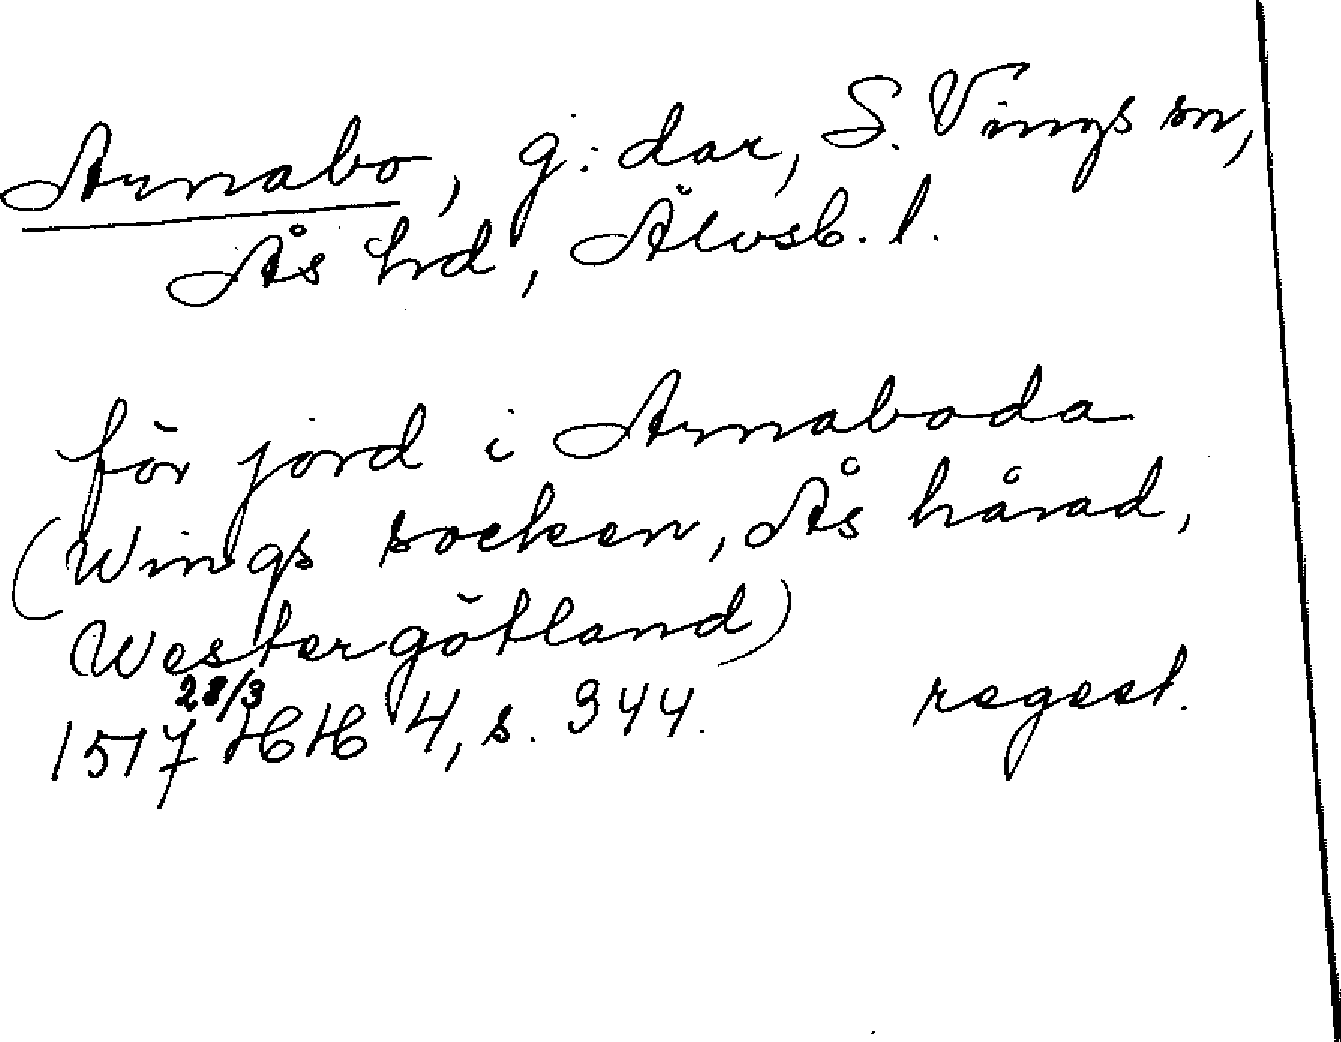 Arnabo, g:dar, S. Vings sn,
Ås hd, Älvsb. l.
för jord i Arnaboda
(Wings socken, Ås härad,
Westergötland)
28/3
1517 HH 4, s. 344. regest.